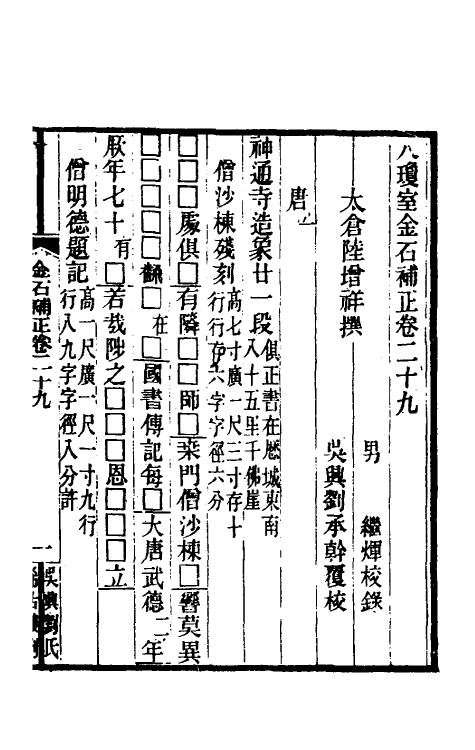 八瓊室金石補正卷二十九
太倉陸增祥撰
男　繼煇校錄
吳興劉承幹覆校
唐一
神通寺造象廿一段俱正書在歷城東南八十五里千佛崖
僧沙棟殘刻高七寸廣一尺三寸存十行行存六字字徑六分
□□□處俱□有隣□□師□桒門僧沙棟□響莫異
□□□□□□在□國書傳記每□大唐武德二年
厥年七十有□若𢦏陟之□□□恩□□□立
僧明德題記高一尺廣一尺一寸九行行八九字字徑八分許
金石補正卷二十九
一
吳興劉氏